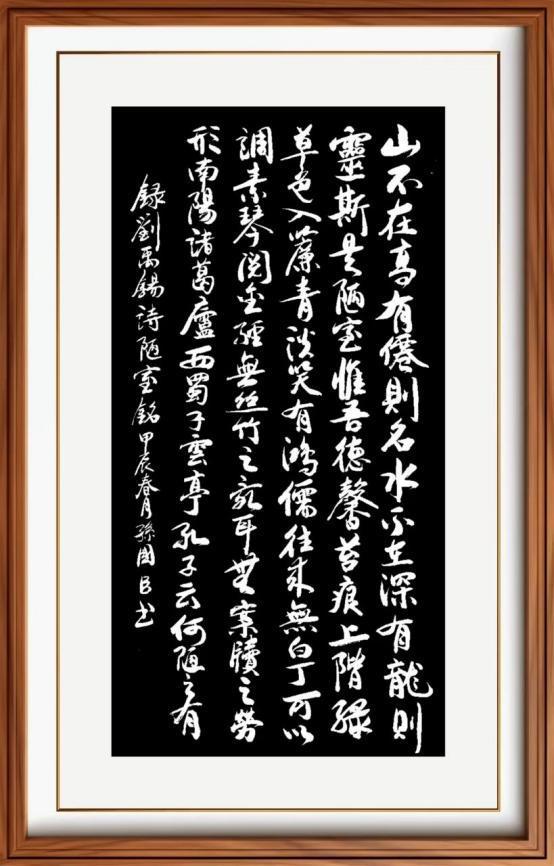 山不在高有僊則名水不在深有龍則
靈斯是陋室惟吾德馨苔痕上階綠
草色入簾青談笑有鴻儒往來無白丁可以
調素琴閱金經無絲竹之亂耳無案牘之勞
形南陽諸葛廬西蜀子雲亭孔子云何陋之有
録劉禹錫詩陋室銘甲辰春月孫國书